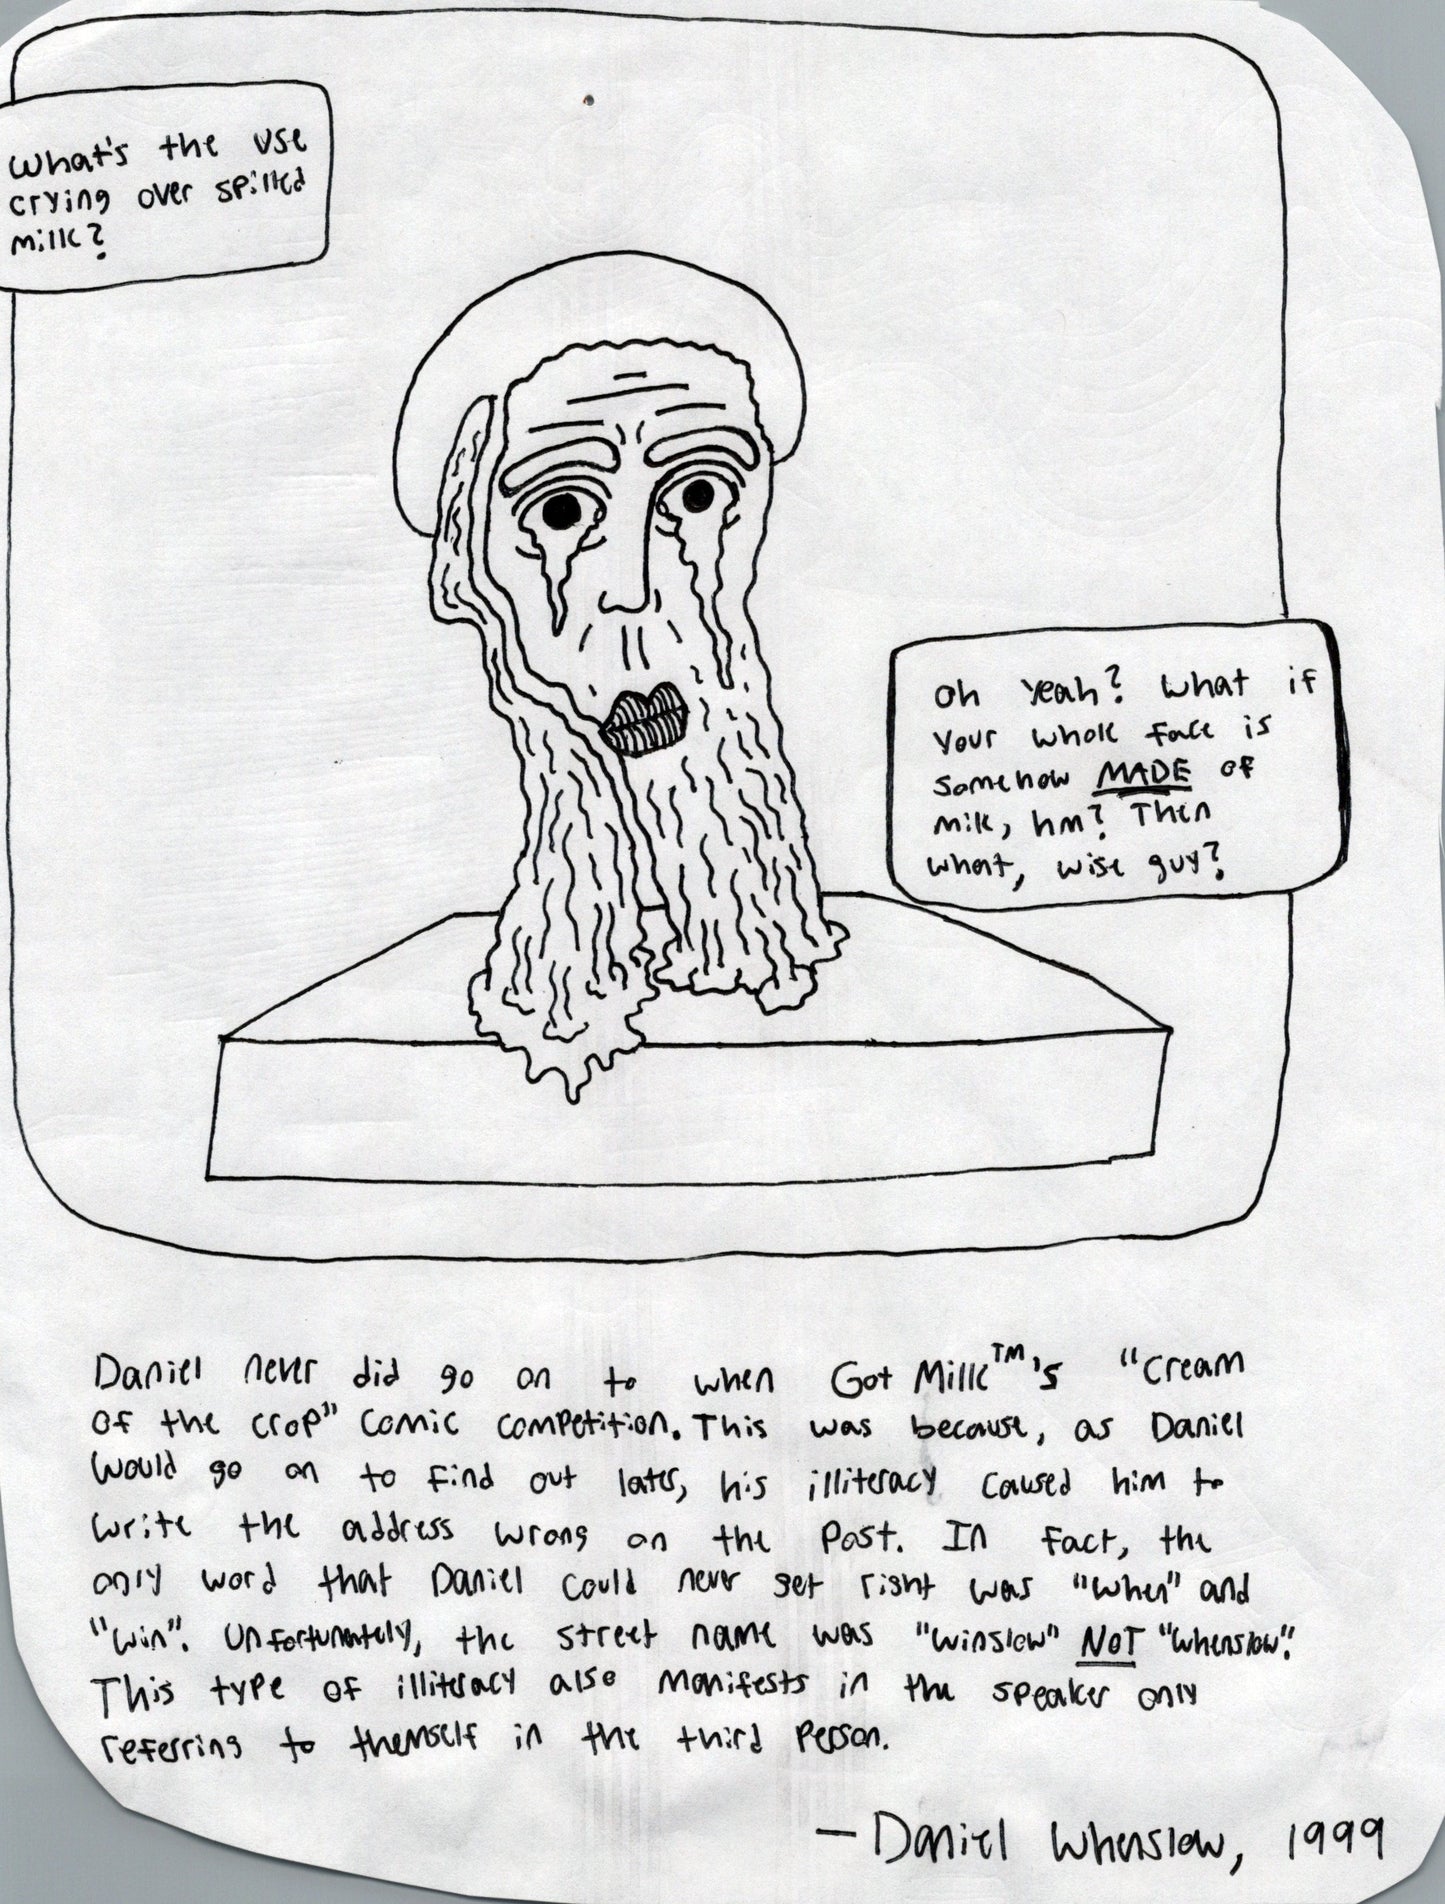 What's the use
crying over spilled
milk?
Oh yeah? What if
your whole face is
somehow MADE of
milk, hm? Then
what, wise guy?
Daniel never did go on to when Got Milk™'s "Cream
of the crop" comic competition. This was because, as Daniel
would go on to find out later, his illiteracy caused him to
write the address wrong on the post. In fact, the
only word that Daniel could never get right was "when" and
"win". Unfortunately, the street name was "winslow" NOT "whenslow".
This type of illiteracy also manifests in the speaker only
referring to themself in the third person.
— Daniel Whenslow, 1999